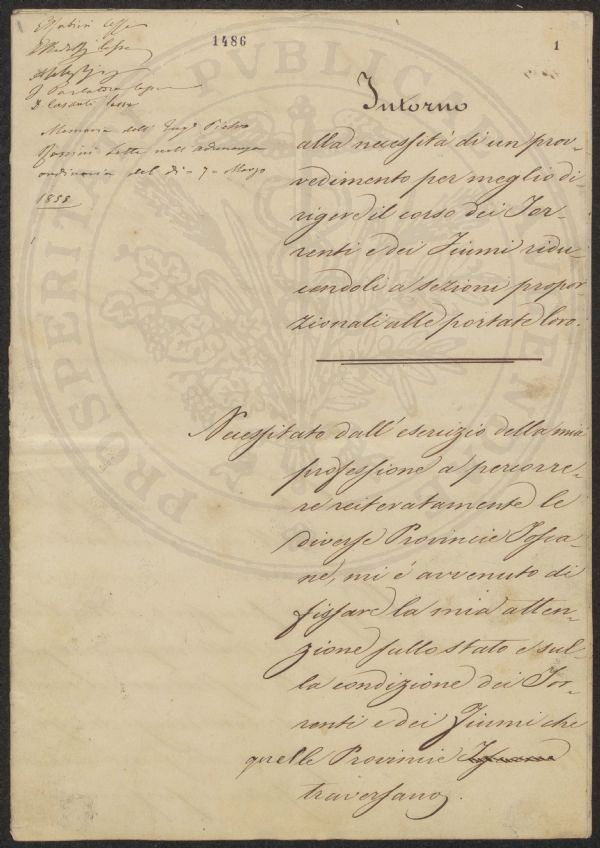 1486
1
Memoria dell' Ing.e Pietro
letta nell' adunanza
ordinaria del dì = 7 = Marzo
1858
Intorno
alla necessità di un prov-
vedimento per meglio di-
rigere il corso dei Tor-
renti e dei Fiumi ridu-
cendoli a sezioni propor
zionali alle portate loro.
Necessitato dall' esercizio della mia
professione a percorre-
re reiteratamente le
diverse Provincie Tosca-
ne, mi é avvenuto di
fissare la mia atten-
zione sullo stato e sul-
la condizione dei Tor-
renti e dei Fiumi che
quelle Provincie
traversano.
PROSPERITA PVBLICA